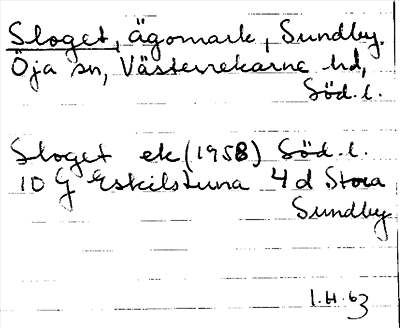 Sloget, ägomark, Sundby.
Öja sn, Västerrekarne hd,
Söd. l.
Sloget ek (1958) Söd. l.
10 G Eskilstuna 4 d Stora
Sundby
1.H.63